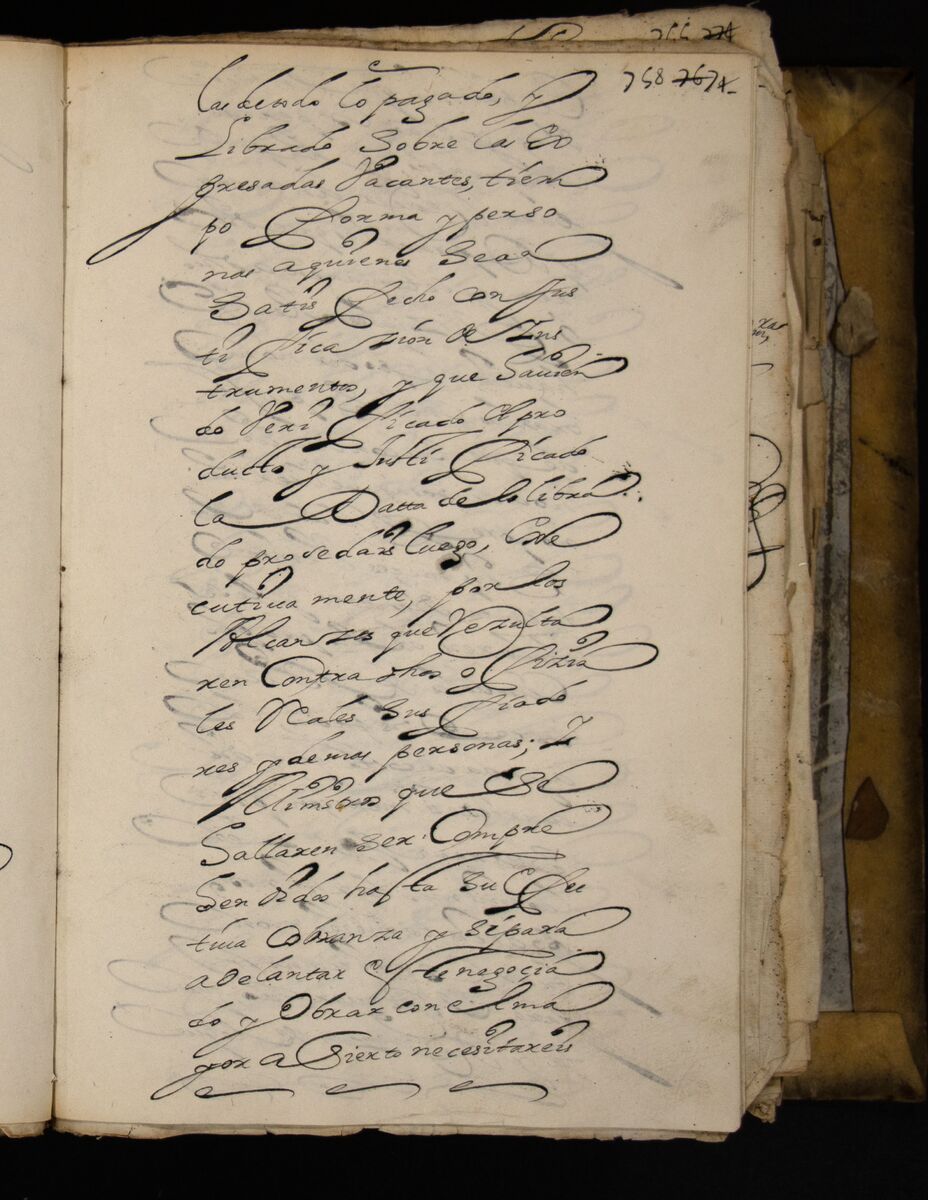 758 767A
las de todo lo pagado, y
Librado Sobre las Ex
presadas Vacantes, tiem
po forma y perso
nas a quienes Sea
Satis fecho con Jus
ti ficazión de Ins
trumentos, y que Savien
do Veri ficado el pro
ducto y Justi ficado
la Datta de lo libra
do provedais luego, Exe
cutiua mente, por los
Alcanzes que Rezulta
ren Contra dhos ofizia
les Reales Sus fiado
res y demas personas; I
Ministros que Se
hallaren Ser Compre
hendidos hasta Su Efec
tiua Cobranza y si para
adelantar Este negocia
do y Obrar con el ma
yor a Sierto necesitareis